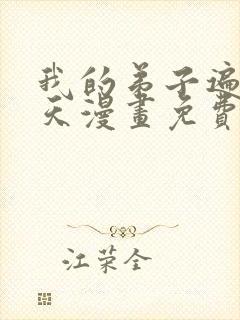 我的弟子遍
天漫畫免費
江荣全